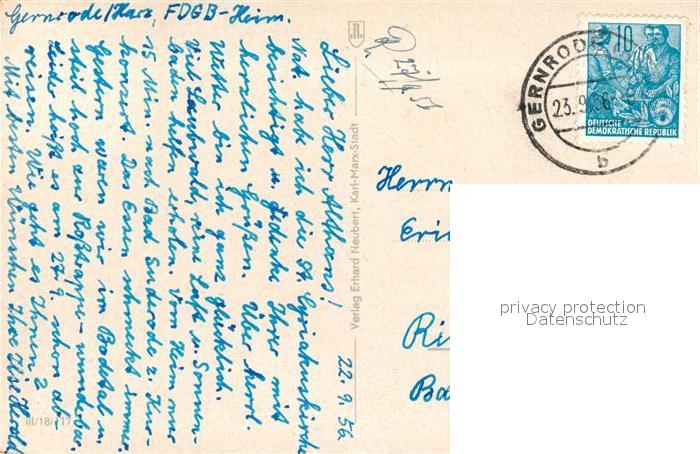 Gernrode/Harz, FDGB-Heim.
22.9.56
Lieber Herr Althans!
Nat. hab ich die St. Cyriakuskirche
besichtigt u. gedenke Ihrer mit
herzlichen Grüßen. Über herrl.
Wetter bin ich ganz glücklich.
Viel Laubwald, reine Luft u. Sonnen-
baden helfen erholen. Vom Heim nur
15 Min. nach Bad Suderode z. Kur-
konzert. Das Essen schmeckt immer.
Gestern waren wir im Bodetal u.
steil hoch zur Roßtrappe - wunderbar.
Leider heißt es am 27.9. schon ab-
reisen. Wie geht es Ihnen?
Mit besten Wünschen Ihre Ilse Herold
III/18/117
Verlag Erhard Neubert, Karl-Marx-Stadt
GERNRODE
23.9.56
b
10
DEUTSCHE
DEMOKRATISCHE REPUBLIK
Herrn
Eri
Ri
Ba
privacy protection
Datenschutz